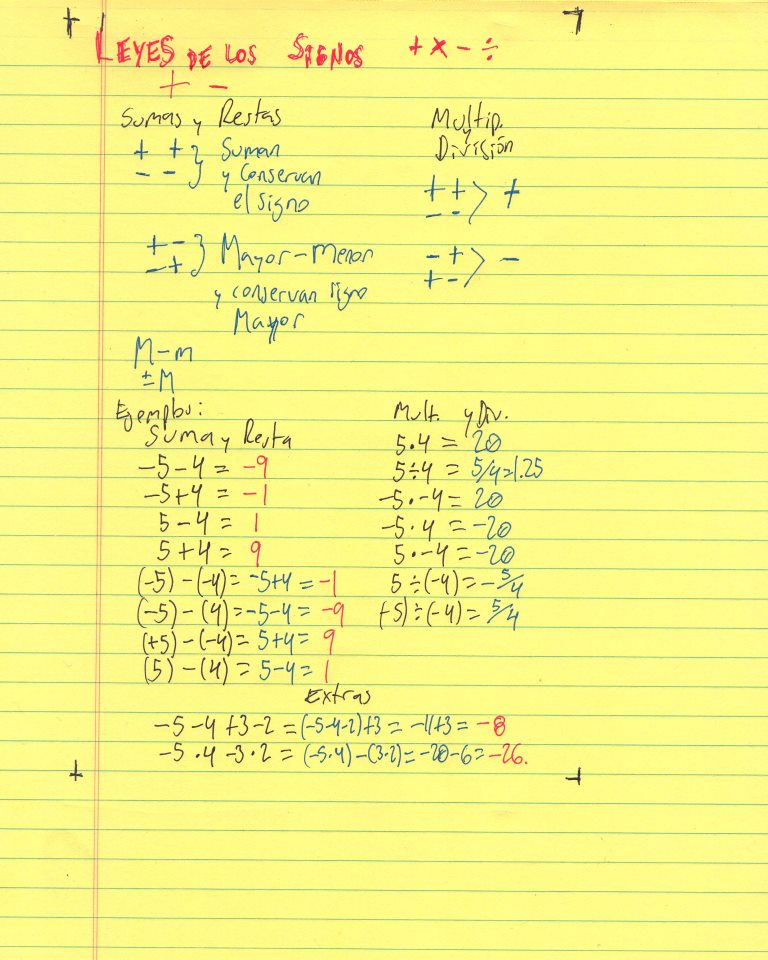 LEYES DE LOS SIGNOS + × - ÷
+ -
Sumas y Restas
+ + } Suman
- - y conservan
el signo
+ - } Mayor - Menor
- + y conservan signo
Mayor
M - m
± M
Multip.
y
División
+ + > +
- -
- + > -
+ -
Ejemplos:
Suma y Resta
-5 - 4 = -9
-5 + 4 = -1
5 - 4 = 1
5 + 4 = 9
(-5) - (-4) = -5+4 = -1
(-5) - (4) = -5-4 = -9
(+5) - (-4) = 5+4 = 9
(5) - (4) = 5-4 = 1
Mult. y Div.
5·4 = 20
5÷4 = 5/4=1.25
-5·-4 = 20
-5·4 = -20
5·-4 = -20
5÷(-4) = -5/4
(-5)÷(-4) = 5/4
Extras
-5-4+3-2 = (-5-4-2)+3 = -11+3 = -8
-5·4-3·2 = (-5·4)-(3·2) = -20-6 = -26.